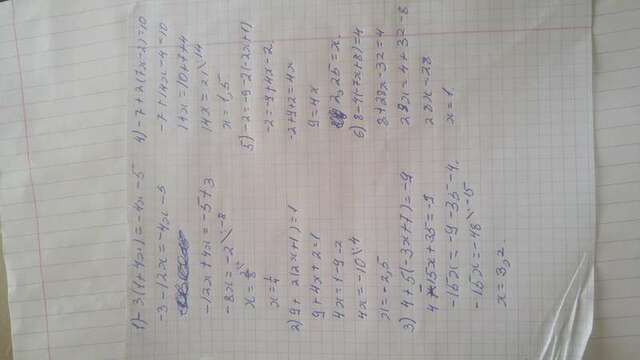 1) -3(1+4x)=-4x-5
-3-12x=-4x-5
-12x+4x=-5+3
-8x=-2 \:-8
x=1/4
2) 9+2(2x+1)=1
9+4x+2=1
4x=1-9-2
4x=-10 \:4
x=-2,5
3) 4+5(-3x+7)=-9
4-15x+35=-9
-15x=-9-35-4
-15x=-48 \:-15
x=3,2
4) -7+2(7x-2)=10
-7+14x-4=10
14x=10+7+4
14x=21 \:14
x=1,5
5) -2=-9-2(-2x+1)
-2=-9+4x-2
-2+9+2=4x
9=4x
2,25=x
6) 8-4(-7x+8)=4
8+28x-32=4
28x=4+32-8
28x=28
x=1